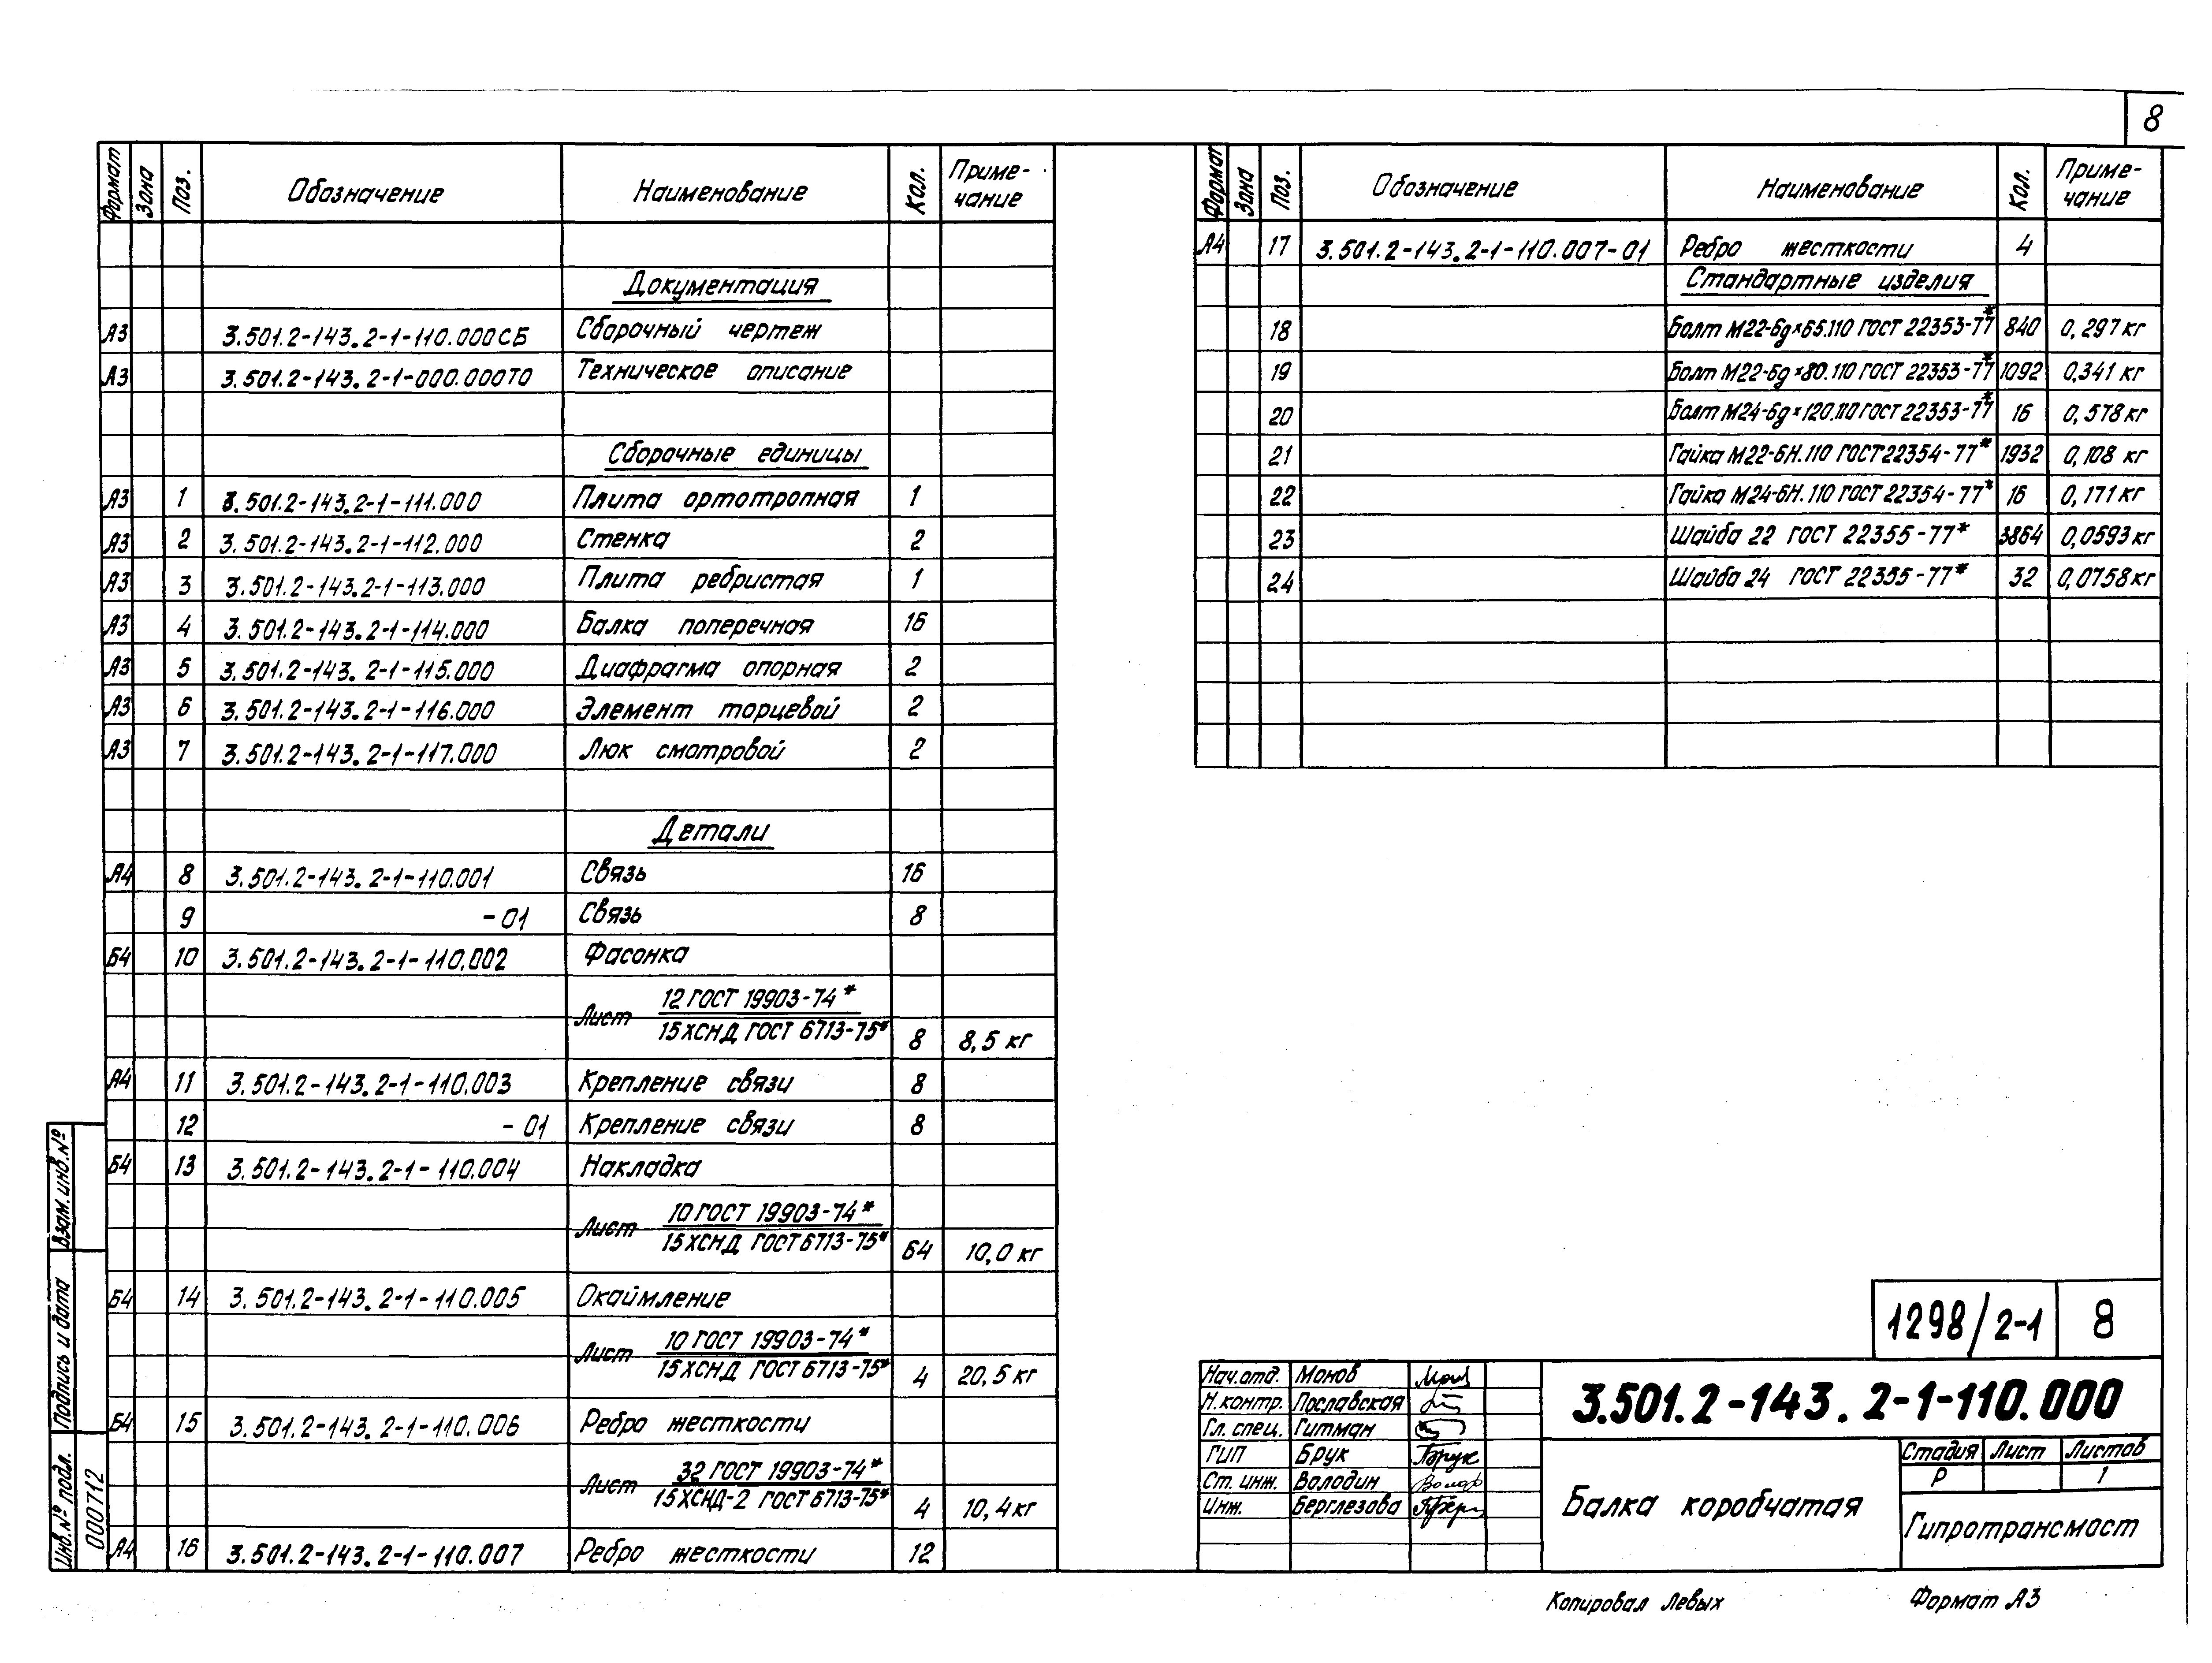 8
Формат Зона Поз. Обозначение Наименование Кол. Приме-чание
Документация
А3 3.501.2-143.2-1-110.000СБ Сборочный чертеж
А3 3.501.2-143.2-1-000.000ТО Техническое описание
Сборочные единицы
А3 1 3.501.2-143.2-1-111.000 Плита ортотропная 1
А3 2 3.501.2-143.2-1-112.000 Стенка 2
А3 3 3.501.2-143.2-1-113.000 Плита ребристая 1
А3 4 3.501.2-143.2-1-114.000 Балка поперечная 16
А3 5 3.501.2-143.2-1-115.000 Диафрагма опорная 2
А3 6 3.501.2-143.2-1-116.000 Элемент торцевой 2
А3 7 3.501.2-143.2-1-117.000 Люк смотровой 2
Детали
А4 8 3.501.2-143.2-1-110.001 Связь 16
9 -01 Связь 8
Б4 10 3.501.2-143.2-1-110.002 Фасонка
12 ГОСТ 19903-74*
Лист
15ХСНД ГОСТ 6713-75* 8 8,5 кг
А4 11 3.501.2-143.2-1-110.003 Крепление связи 8
12 -01 Крепление связи 8
Б4 13 3.501.2-143.2-1-110.004 Накладка
10 ГОСТ 19903-74*
Лист
15ХСНД ГОСТ 6713-75* 64 10,0 кг
Б4 14 3.501.2-143.2-1-110.005 Окаймление
10 ГОСТ 19903-74*
Лист
15ХСНД ГОСТ 6713-75* 4 20,5 кг
Б4 15 3.501.2-143.2-1-110.006 Ребро жесткости
32 ГОСТ 19903-74*
Лист
15ХСНД-2 ГОСТ 6713-75* 4 10,4 кг
А4 16 3.501.2-143.2-1-110.007 Ребро жесткости 12
Формат Зона Поз. Обозначение Наименование Кол. Приме-чание
А4 17 3.501.2-143.2-1-110.007-01 Ребро жесткости 4
Стандартные изделия
18 Болт М22-6g×65.110 ГОСТ 22353-77* 840 0,297 кг
19 Болт М22-6g×80.110 ГОСТ 22353-77* 1092 0,341 кг
20 Болт М24-6g×120.110 ГОСТ 22353-77* 16 0,578 кг
21 Гайка М22-6Н.110 ГОСТ 22354-77* 1932 0,108 кг
22 Гайка М24-6Н.110 ГОСТ 22354-77* 16 0,171 кг
23 Шайба 22 ГОСТ 22355-77* 3864 0,0593 кг
24 Шайба 24 ГОСТ 22355-77* 32 0,0758 кг
Взам. инв. №
Подпись и дата
Инв. № подл. 000712
1298/2-1 8
Нач. отд. Монов
Н. контр. Пославская
Гл. спец. Гитман
ГИП Брук Брук
Ст. инж. Володин
Инж. Берглезова
3.501.2-143.2-1-110.000
Балка коробчатая
Стадия Лист Листов
Р 1
Гипротрансмост
Копировал Левых Формат А3